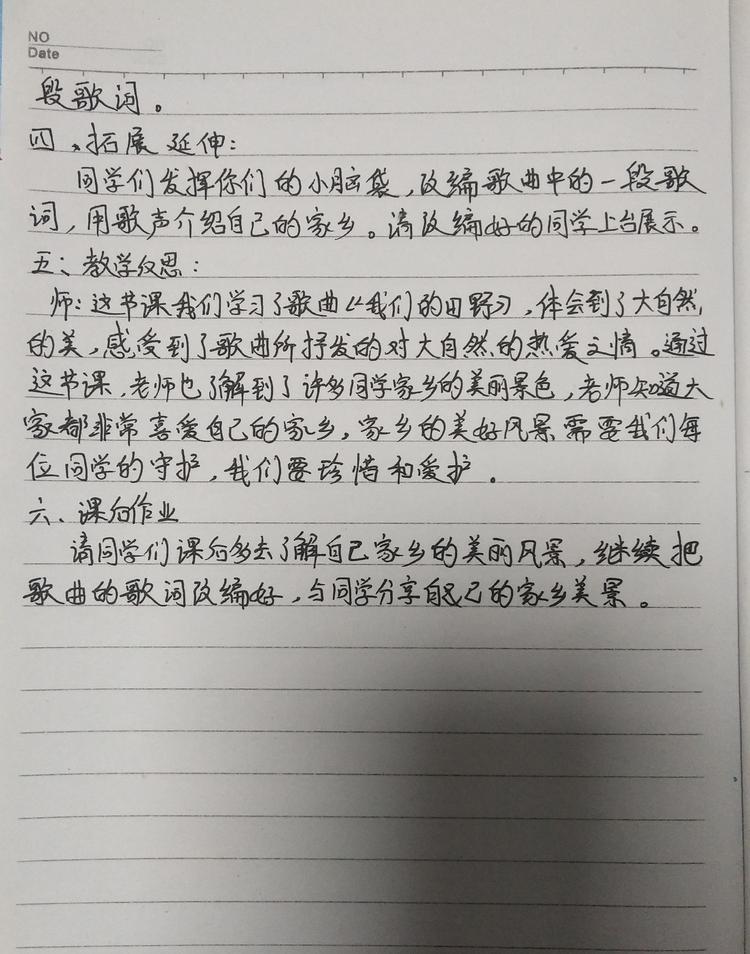 NO
Date
段歌词。
四、拓展延伸：
同学们发挥你们的小脑袋，改编歌曲中的一段歌
词，用歌声介绍自己的家乡。请改编好的同学上台展示。
五、教学反思：
师：这节课我们学习了歌曲《我们的田野》，体会到了大自然
的美，感受到了歌曲所抒发的对大自然的热爱之情。通过
这节课，老师也了解到了许多同学家乡的美丽景色，老师知道大
家都非常喜爱自己的家乡，家乡的美好风景需要我们每
位同学的守护，我们要珍惜和爱护。
六、课后作业
请同学们课后多去了解自己家乡的美丽风景，继续把
歌曲的歌词改编好，与同学分享自己的家乡美景。